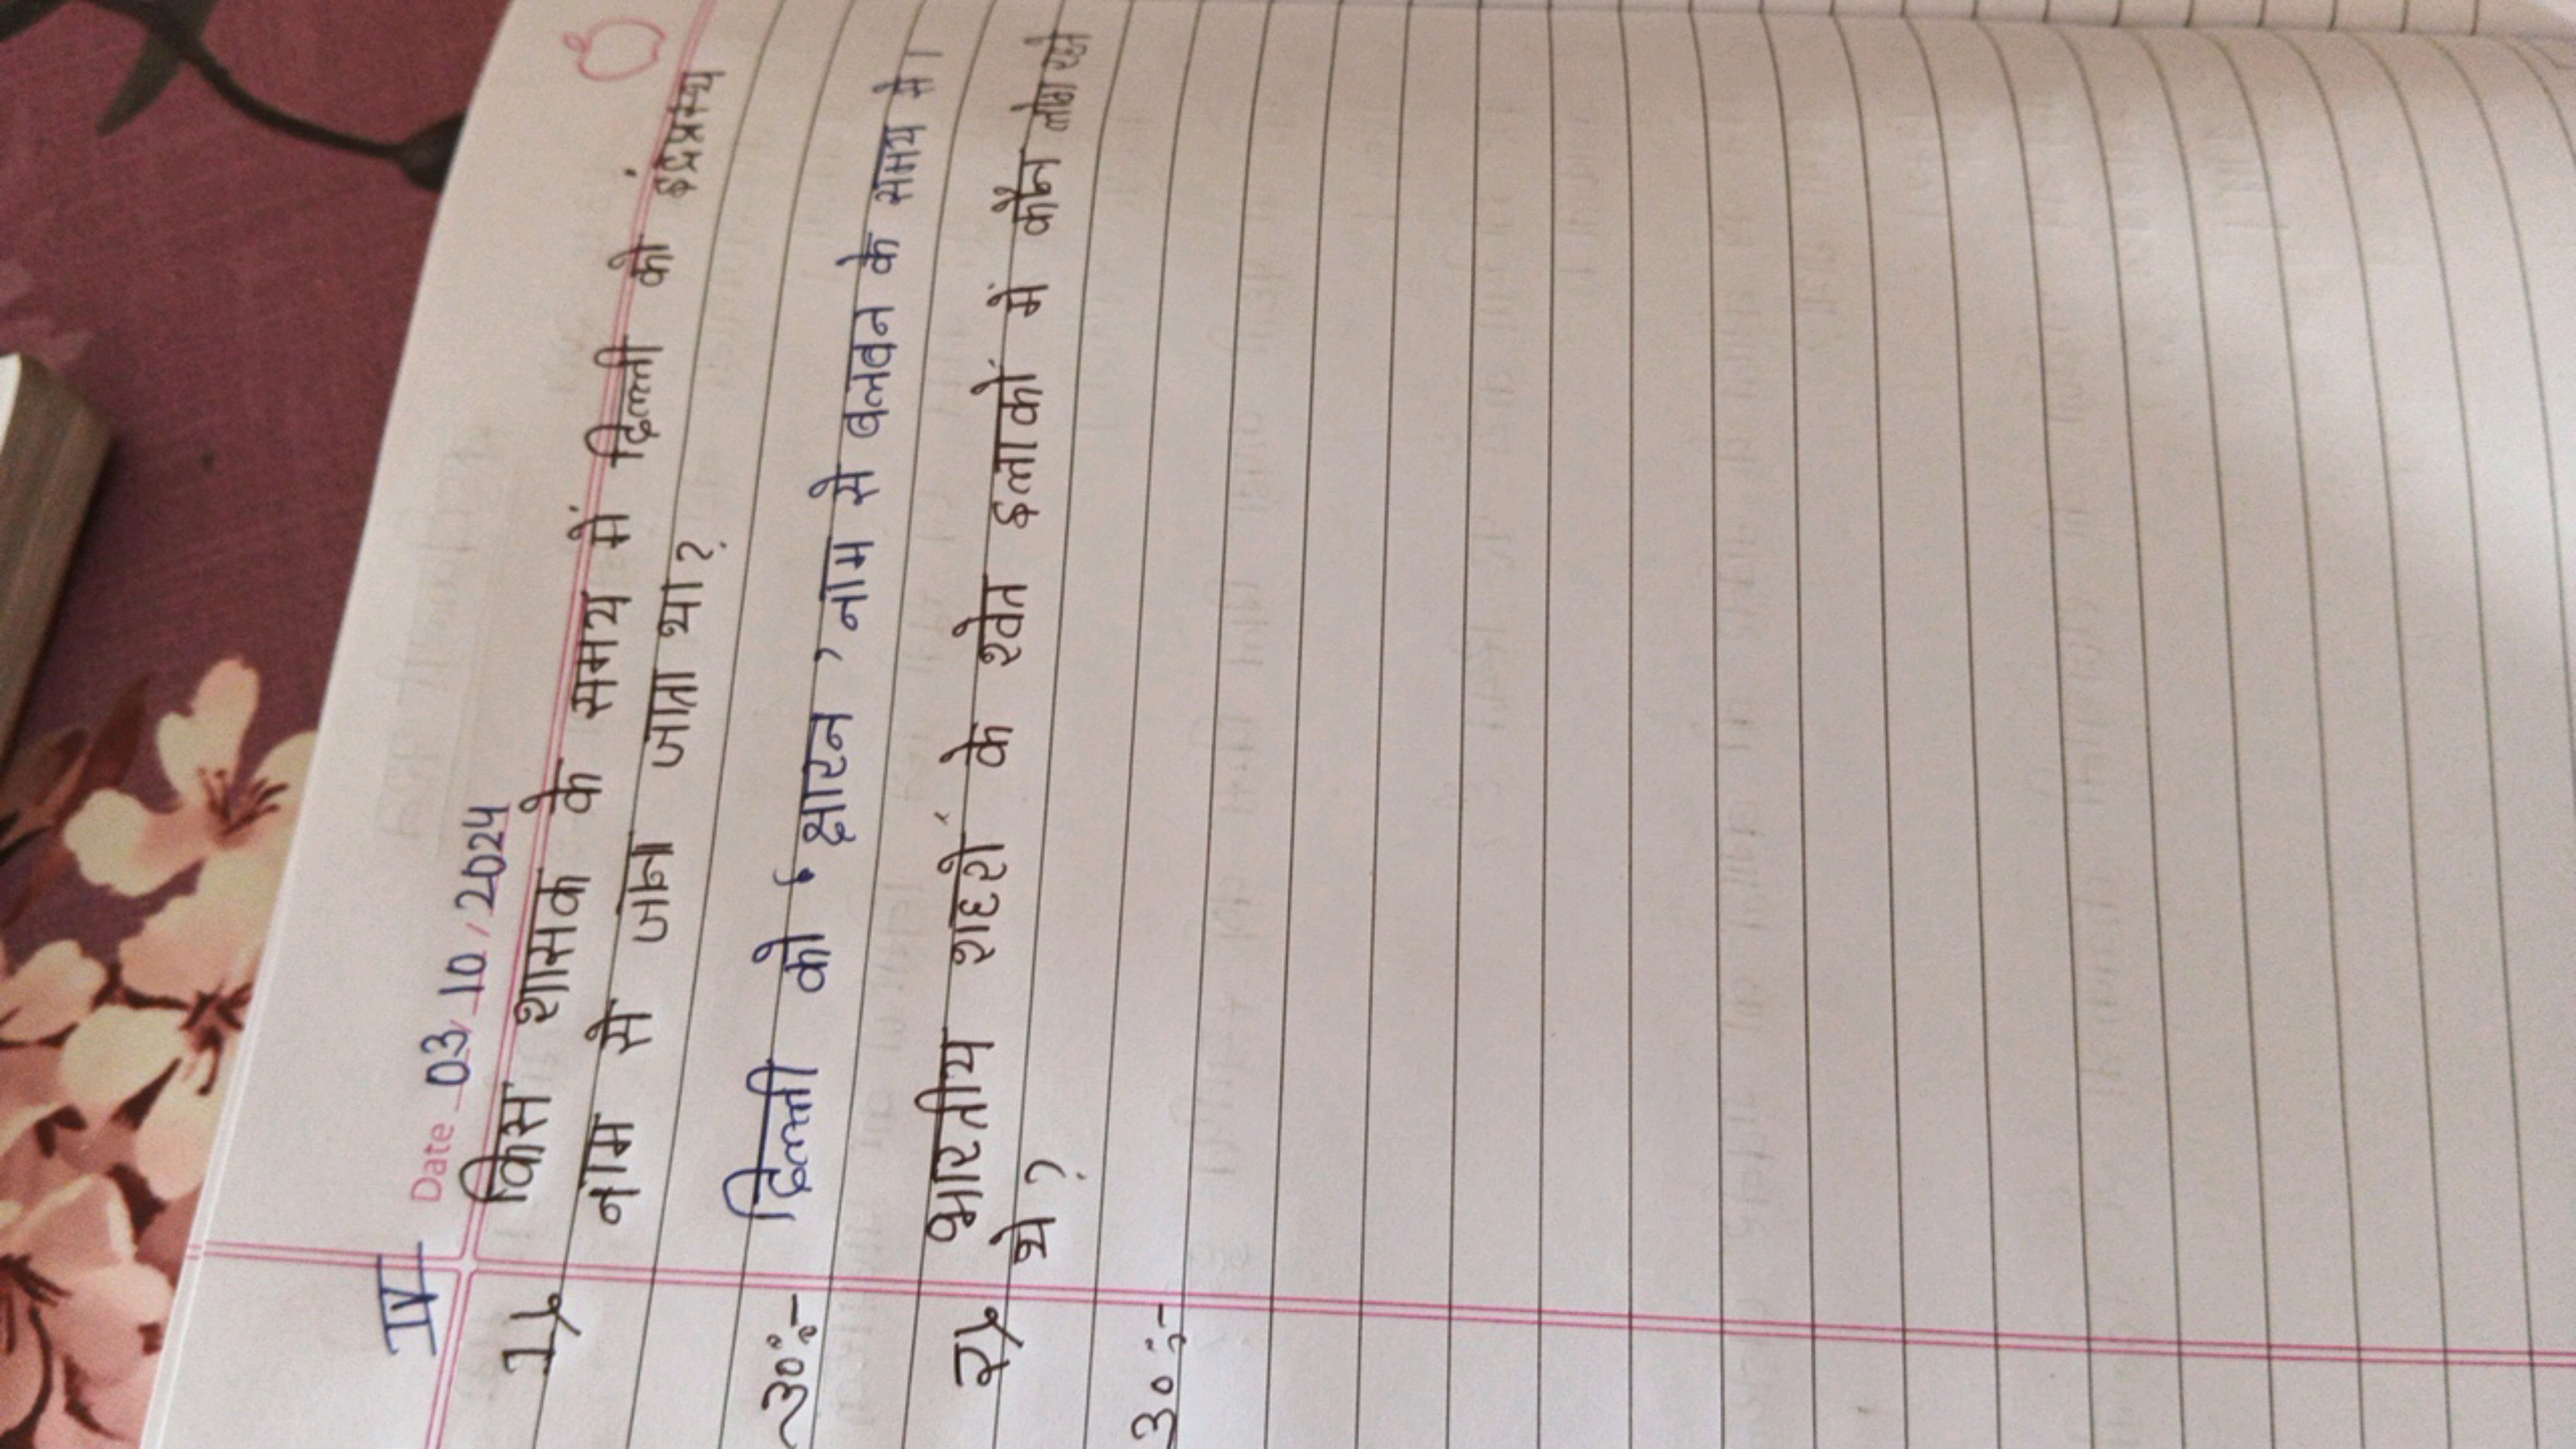 IV
Date 03/10/2024
1) किस शासक के समय में दिल्ली को इंद्रप्रस्थ
नाम से जाना जाता था?
उ०:- दिल्ली को ' क्षारन ' नाम से बलवन के समय में।
2) भारतीय शहरों के श्वेत इलाकों में कौन लोग रहते
थे?
उ०:-